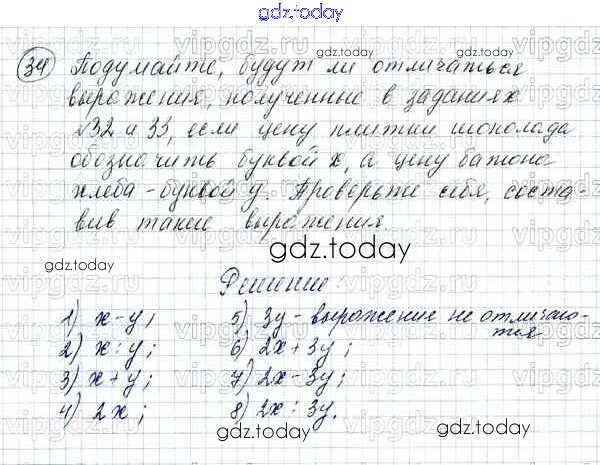 gdz.today
34 Подумайте, будут ли отличаться
gdz.today
выражения, полученные в заданиях
№32 и 33, если цену плитки шоколада
обозначить буквой x, а цену батона
хлеба - буквой y. Проверьте себя, соста-
вив такие выражения.
gdz.today
Решение:
1) x - y;
2) x : y;
3) x + y;
4) 2x;
5) 3y - выражение не отличаю-
тся
6) 2x + 3y;
7) 2x - 3y;
8) 2x : 3y.
gdz.today
gdz.today